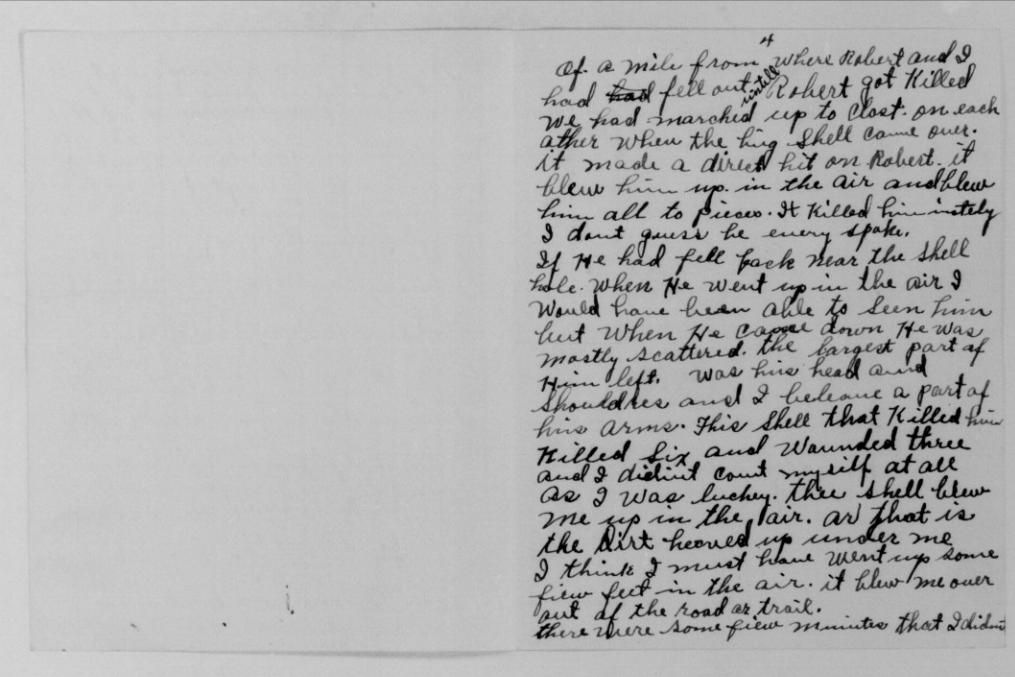 4
Of a mile from where Robert and I
had had fell out intill Robert got Killed
we had marched up to clost. on each
ather when the big shell came over.
it made a direct hit on Robert. it
blew him up. in the air and blew
him all to pieces. It Killed him instely
I dont guess he enery spoke.
If He had fell back near the shell
hole. When He went up in the air I
Would have been able to seen him
but When He came down He was
mostly scattered. the largest part of
Him left. was his head and
shouldres and I beleave a part of
his arms. This shell that Killed him
Killed Six and Wounded three
and I didint count myself at all
as I was luckey. thee shell blew
me up in the air. ar that is
the Dirt heaved up under me
I think I must have went up some
fiew feet in the air. it blew me over
out of the road or trail.
there were some fiew minutes that I didnt